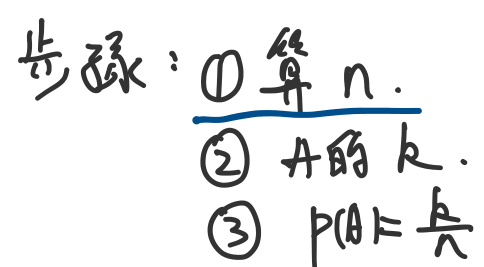 步骤：① 算 n.
② A的 k.
③ P(A)=k/n